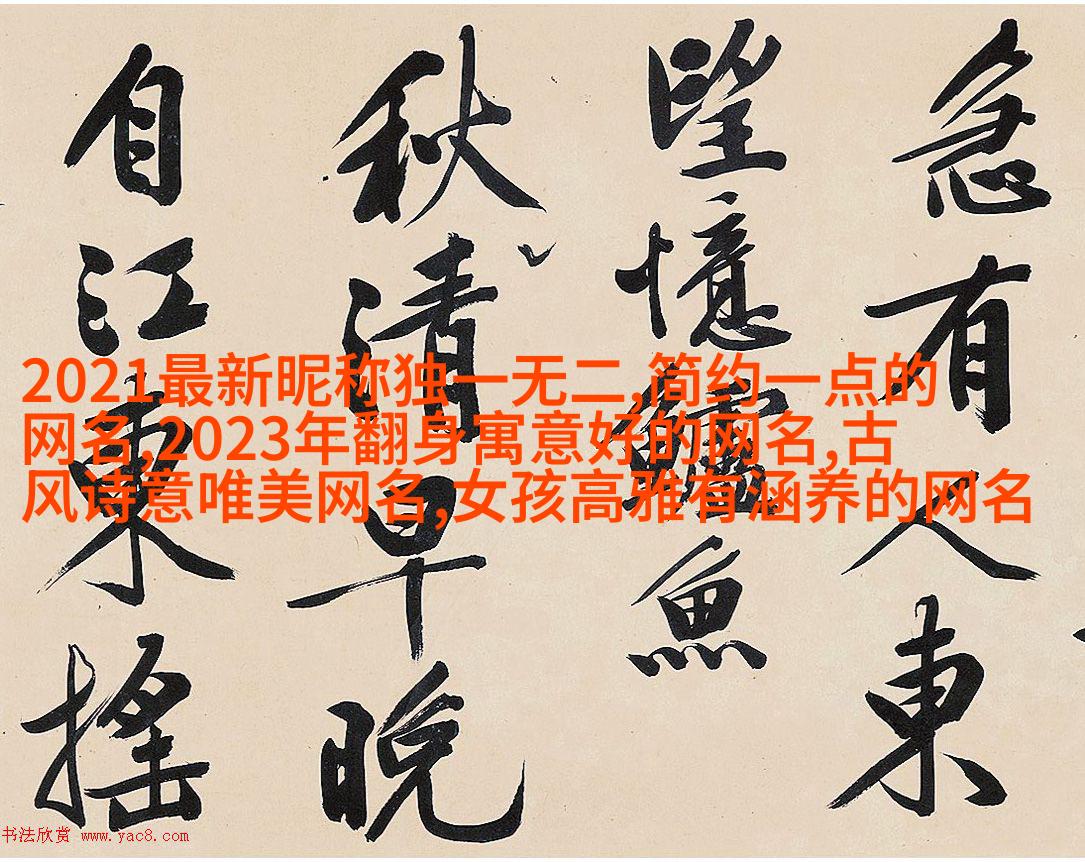 急有人東
望憶魚
秋清早晚
自江東搖
2021最新昵称独一无二,简约一点的
网名,2023年翻身寓意好的网名,古
风诗意唯美网名,女孩高雅有涵养的网名
书法欣赏 www.yac8.com